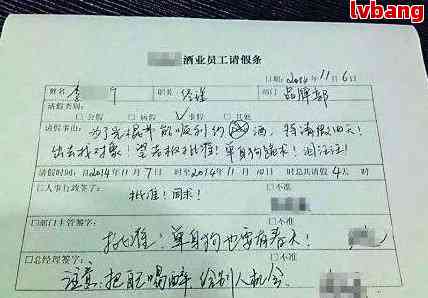 lvbang
酒业员工请假条
日期：2014年11月6日
姓名 李 职务 经理 部门 品牌部
请假类别：
□公假 □病假 ✓事假 □其他
请假事由：为了光棍节能顺利约 酒，特请假四天！
出去找对象！望老板批准！单身狗跪求！泪汪汪！
请假时间：自2014年11月7日至2014年11月10日 时总共请假4天 时
□人事行政签字： □不准
批准！同求！
□部门主管签字： □不准
批准！单身狗也要有春天！
□总经理签字： □不准
注意：把 喝醉 给别人机会